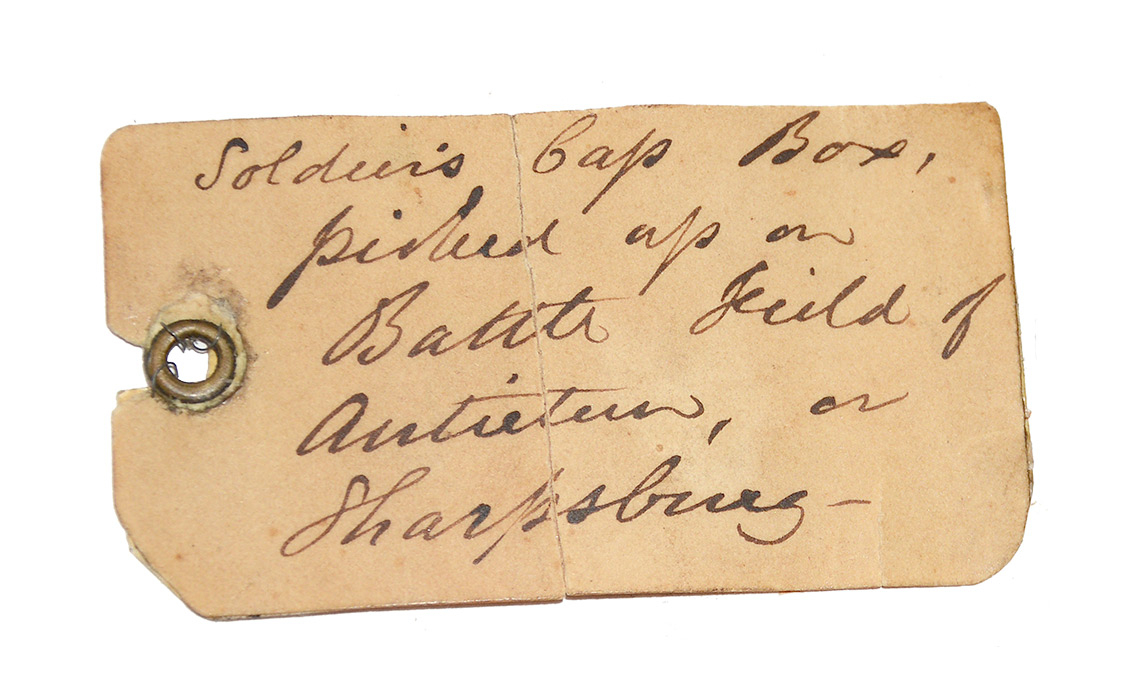 Soldier's Cap Box,
picked up on
Battle Field of
Antietum, or
Sharpsburg –